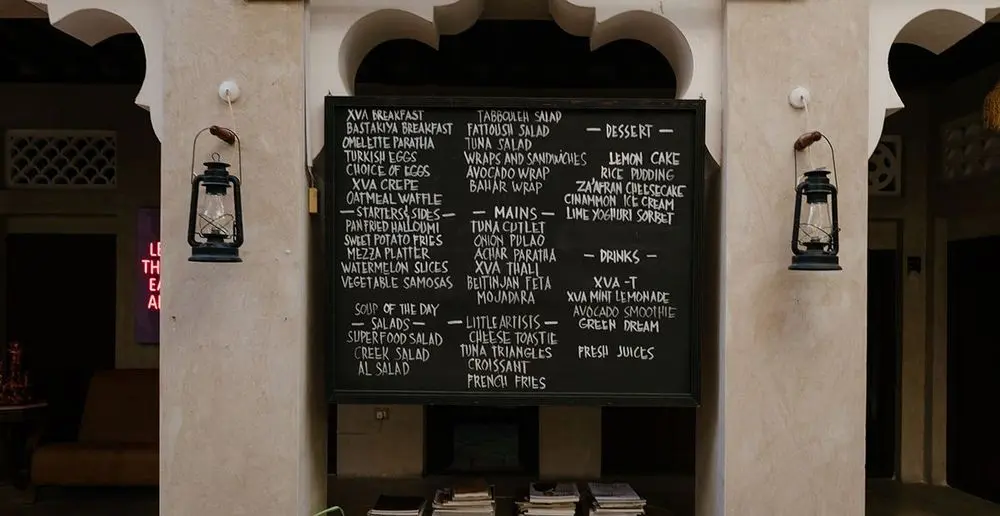 XVA BREAKFAST
BASTAKIYA BREAKFAST
OMELETTE PARATHA
TURKISH EGGS
CHOICE OF EGGS
XVA CREPE
OATMEAL WAFFLE
— STARTERS & SIDES —
PAN FRIED HALLOUMI
SWEET POTATO FRIES
MEZZA PLATTER
WATERMELON SLICES
VEGETABLE SAMOSAS
SOUP OF THE DAY
— SALADS —
SUPERFOOD SALAD
CREEK SALAD
AL SALAD
TABBOULEH SALAD
FATTOUSH SALAD
TUNA SALAD
WRAPS AND SANDWICHES
AVOCADO WRAP
BAHAR WRAP
— MAINS —
TUNA CUTLET
ONION PULAO
ACHAR PARATHA
XVA THALI
BEITINJAN FETA
MOJADARA
— LITTLE ARTISTS —
CHEESE TOASTIE
TUNA TRIANGLES
CROISSANT
FRENCH FRIES
— DESSERT —
LEMON CAKE
RICE PUDDING
ZA'AFRAN CHEESECAKE
CINAMMON ICE CREAM
LIME YOGHURT SORBET
— DRINKS —
XVA -T
XVA MINT LEMONADE
AVOCADO SMOOTHIE
GREEN DREAM
FRESH JUICES